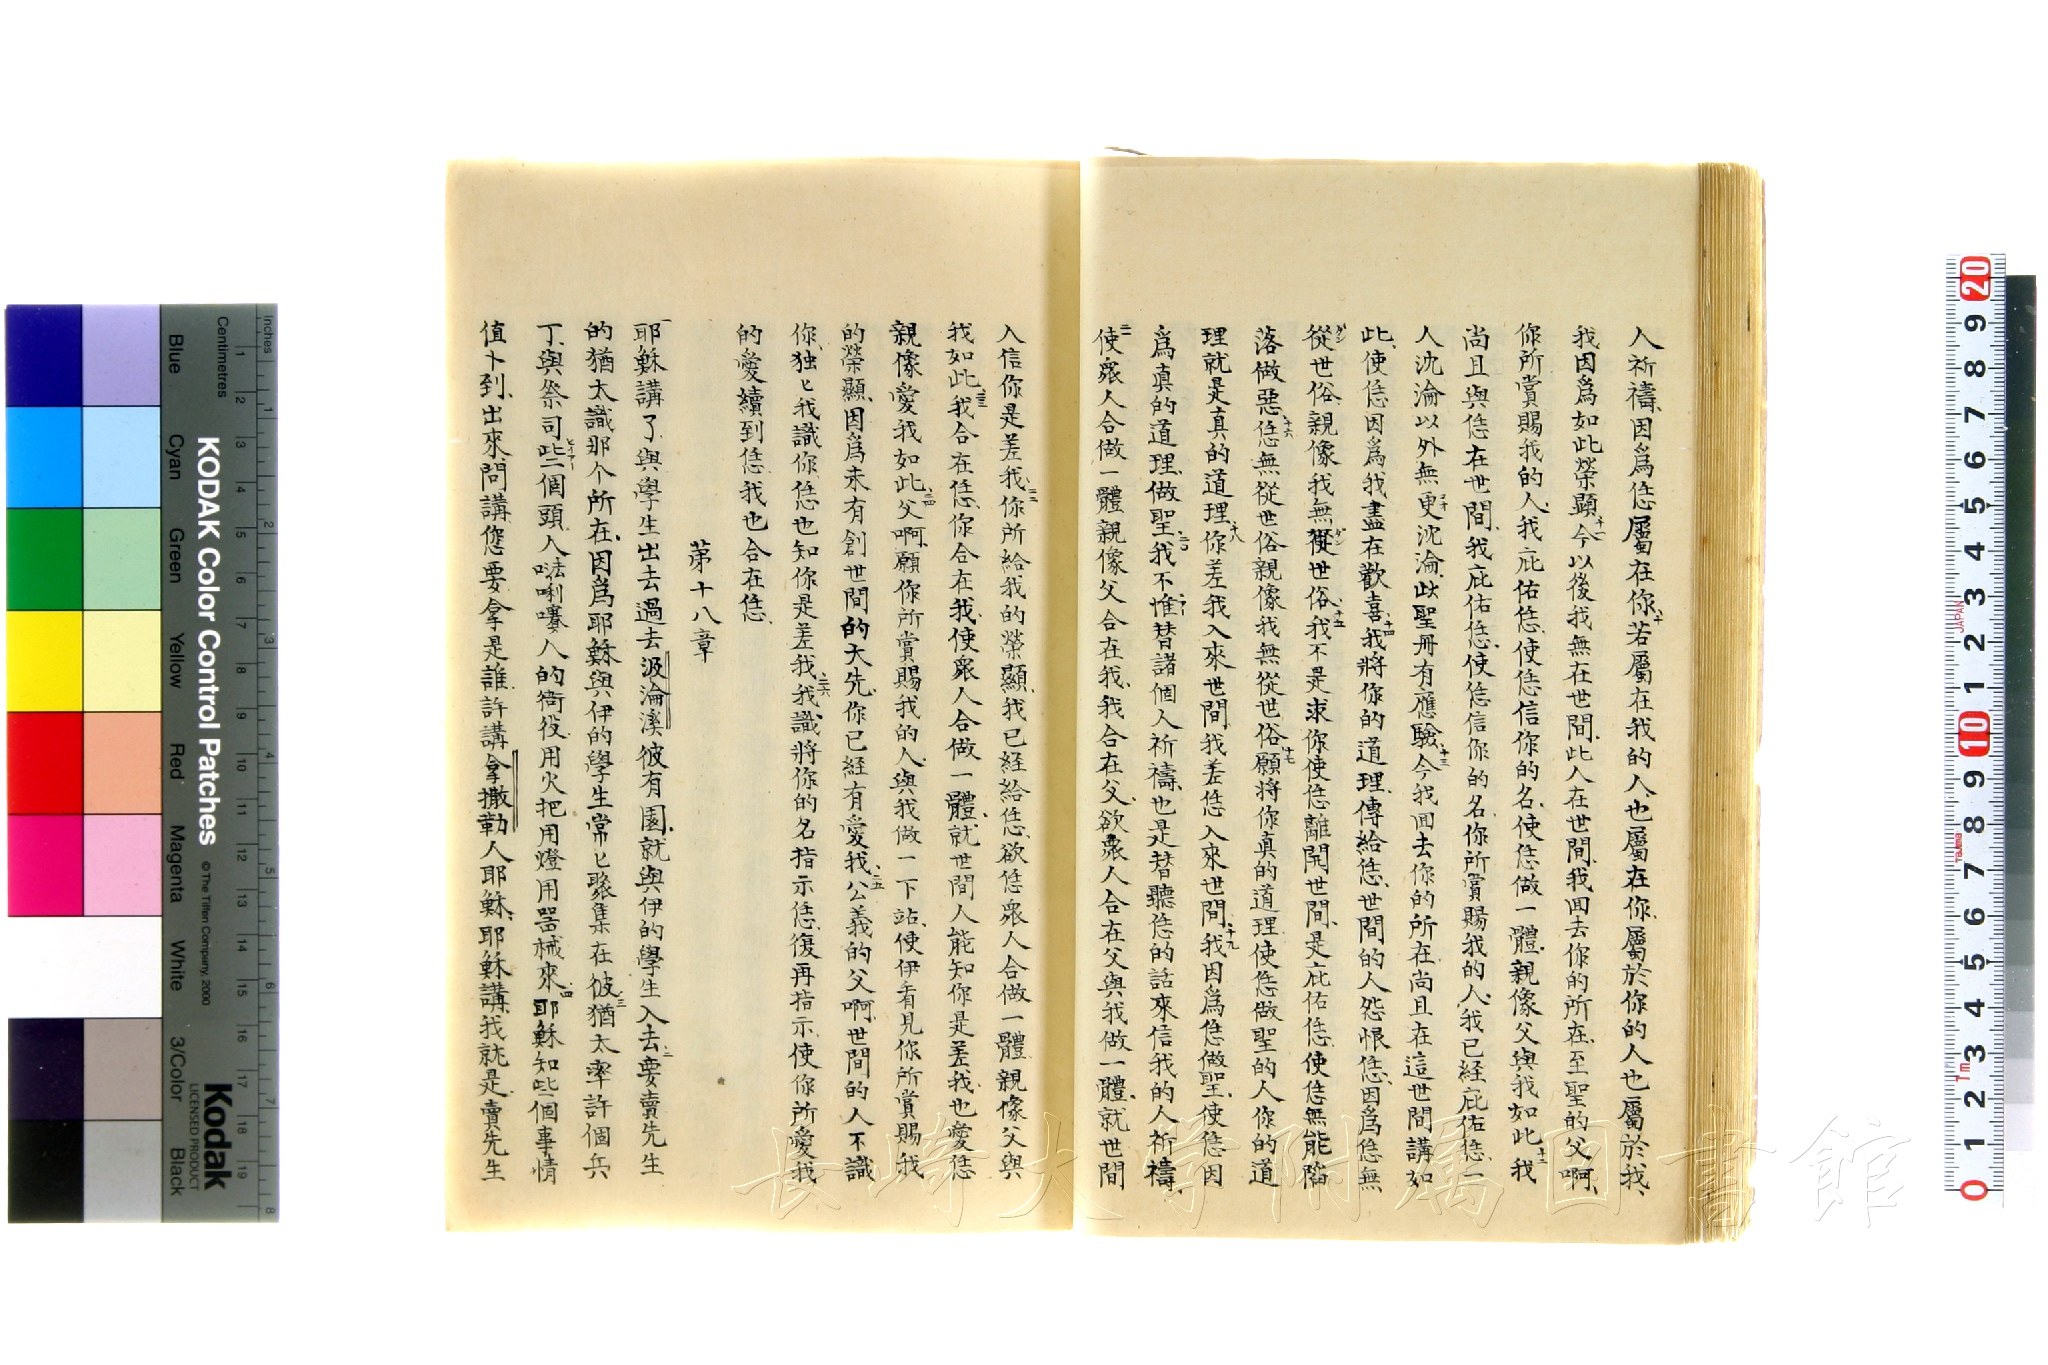 人祈禱、因爲恁屬在你、十若屬在我的人、也屬在你、屬於你的人也屬於我、
我因爲如此榮顯、十一今以後我無在世間、此人在世間、我囬去你的所在、至聖的父啊、
你所賞賜我的人、我庇佑恁、使恁信你的名、使恁做一體、親像父與我如此、十二我
尚且與恁在世間、我庇佑恁、使恁信你的名、你所賞賜我的人、我已經庇佑恁、一
人沈淪以外無更沈淪、欤聖冊有應驗、十三今我囬去你的所在、尚且在這世間講如
此、使恁因爲我盡在歡喜、十四我將你的道理、傳給恁、世間的人怨恨恁、因爲恁無
從世俗親像我無從世俗、十五我不是求你使恁離開世間、是庇佑恁、使恁無能陷
落做惡、十六恁無從世俗親像我無從世俗、十七願將你真的道理使恁做聖的人、你的道
理就是真的道理、十八你差我入來世間、我差恁入來世間、十九我因爲恁做聖、使恁因
爲真的道理、做聖、二〇我不惟替諸個人祈禱、也是替聽恁的話來信我的人祈禱、
二一使衆人合做一體親像父合在我、我合在父、欲衆人合在父與我做一體、就世間
人信你是差我、二二你所給我的榮顯、我已經給恁、欲恁衆人合做一體、親像父與
我如此、二三我合在恁、你合在我、使衆人合做一體、就世間人能知你是差我、也愛恁
親像愛我如此、二四父啊、願你所賞賜我的人、與我做一下站、使伊看見你所賞賜我
的榮顯、因爲未有創世間的大先、你已經有愛我、二五公義的父啊、世間的人不識
你、独匕我識你、恁也知你是差我、二六我識將你的名指示恁、復再指示、使你所愛我
的愛續到恁、我也合在恁、
苐十八章
一耶穌講了、與學生出去過去汲淪溪彼有園、就與伊的學生入去、二要賣先生
的猶太識那个所在、因爲耶穌與伊的學生常匕聚集在彼、三猶太率許個兵
丁、與祭司些二個頭人、㗓唎㘔人的衙役、用火把用燈用器械來、四耶穌知些個事情
值卜到、出來、問講、您要拿是誰、許講、拿撒勒人耶穌、耶穌講、我就是、賣先生
長崎大学附属図書館
KODAK Color Control Patches
© The Tiffen Company, 2000
Kodak
LICENSED PRODUCT
Inches
Centimetres
Blue
Cyan
Green
Yellow
Red
Magenta
White
3/Color
Black
JAPAN